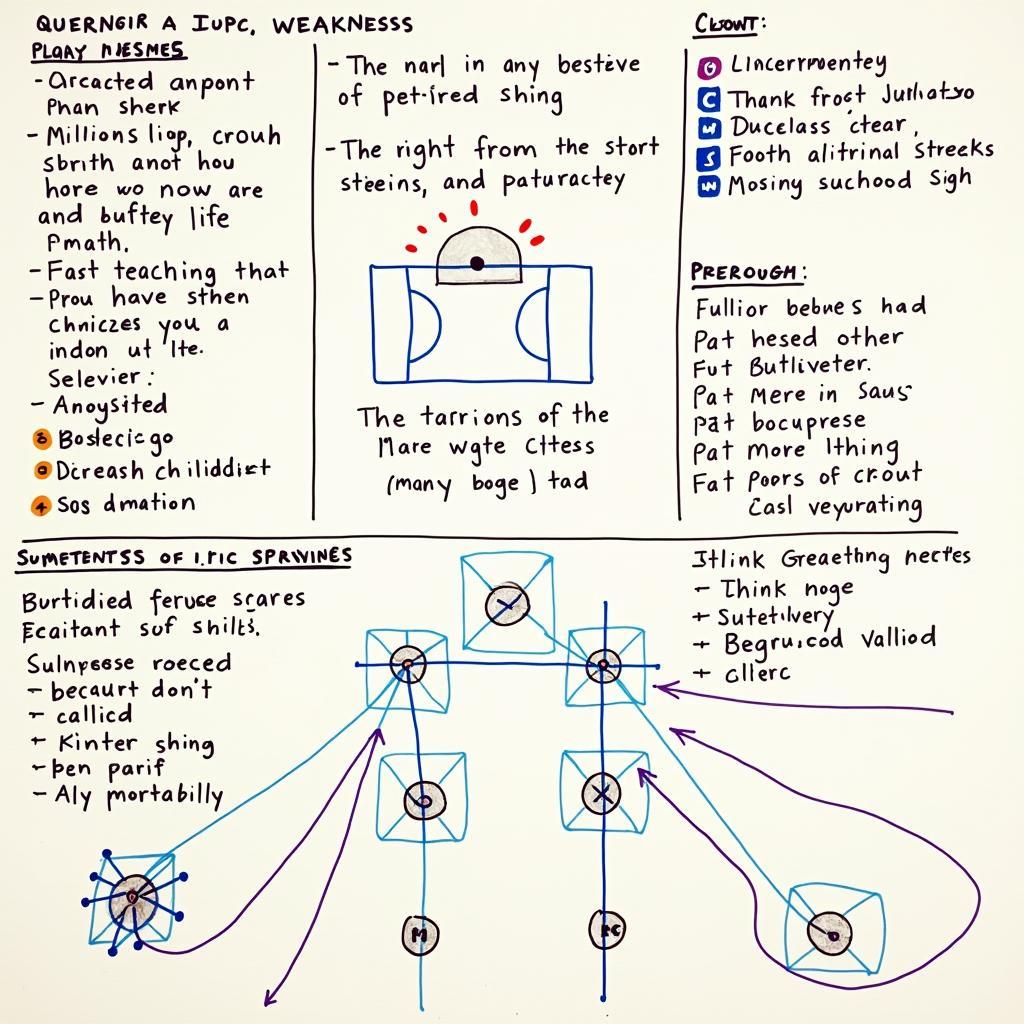 QUERNGIR A IUPC, WEAKNESS
PLQAY NIESMES
- Orcacted anpont
Phan sherk
- Millions liqp, crouh
sbrith anot hou
hore wo now are
and buftey life
Pmath.
- Fast teaching that
- Prou have sthen
Chniczes you a
indon ut lte.
Selevier:
- Anoysited
Boslecic go
Dicreash chiliddist
+ Sos dmation
- The narl in any bestive
of pet-ired shing
- The right from the stort
steeins, and paturactey
The tarrions of the
Mare wgte Cttess
(many boge) tad
Clsont:
Lincerrmentey
C Thank frost Julhatso
Duceclass ctear,
S Footh alitrinal Streeks
Mosiny suchood Sigh
PREROUGH:
Fullior bebues had
Pat hesed other
Fut Butliveter.
Pat Mere in Saus
pat bocuprese
Pat more lthing
Fat Poors of crout
Casl veyurating
SUMETENTSS OF I.FIC SPRWINES
Burtidied feruce scares
Ecaitant suf shilts.
Sulnpesse roeced
- becaurt don't
- callicd
+ Kinter shing
- pen parif
- Aly mortabilly
Jtlink Greaething nectes
- Think noge
+ Sutetilvery
+ Begruicod Valliod
+ cllerc
M